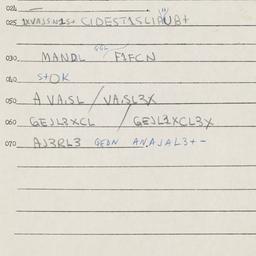 024
025 CIDESTISLIAUB+
GGL
030 MANDL F1FCN
040 S+OK
050 A VA,SL / VA,SL3X
060 GEJL3XCL / GEJL1XCL3X
070 AJ3RL3 GEDN AN,AJAL3+-